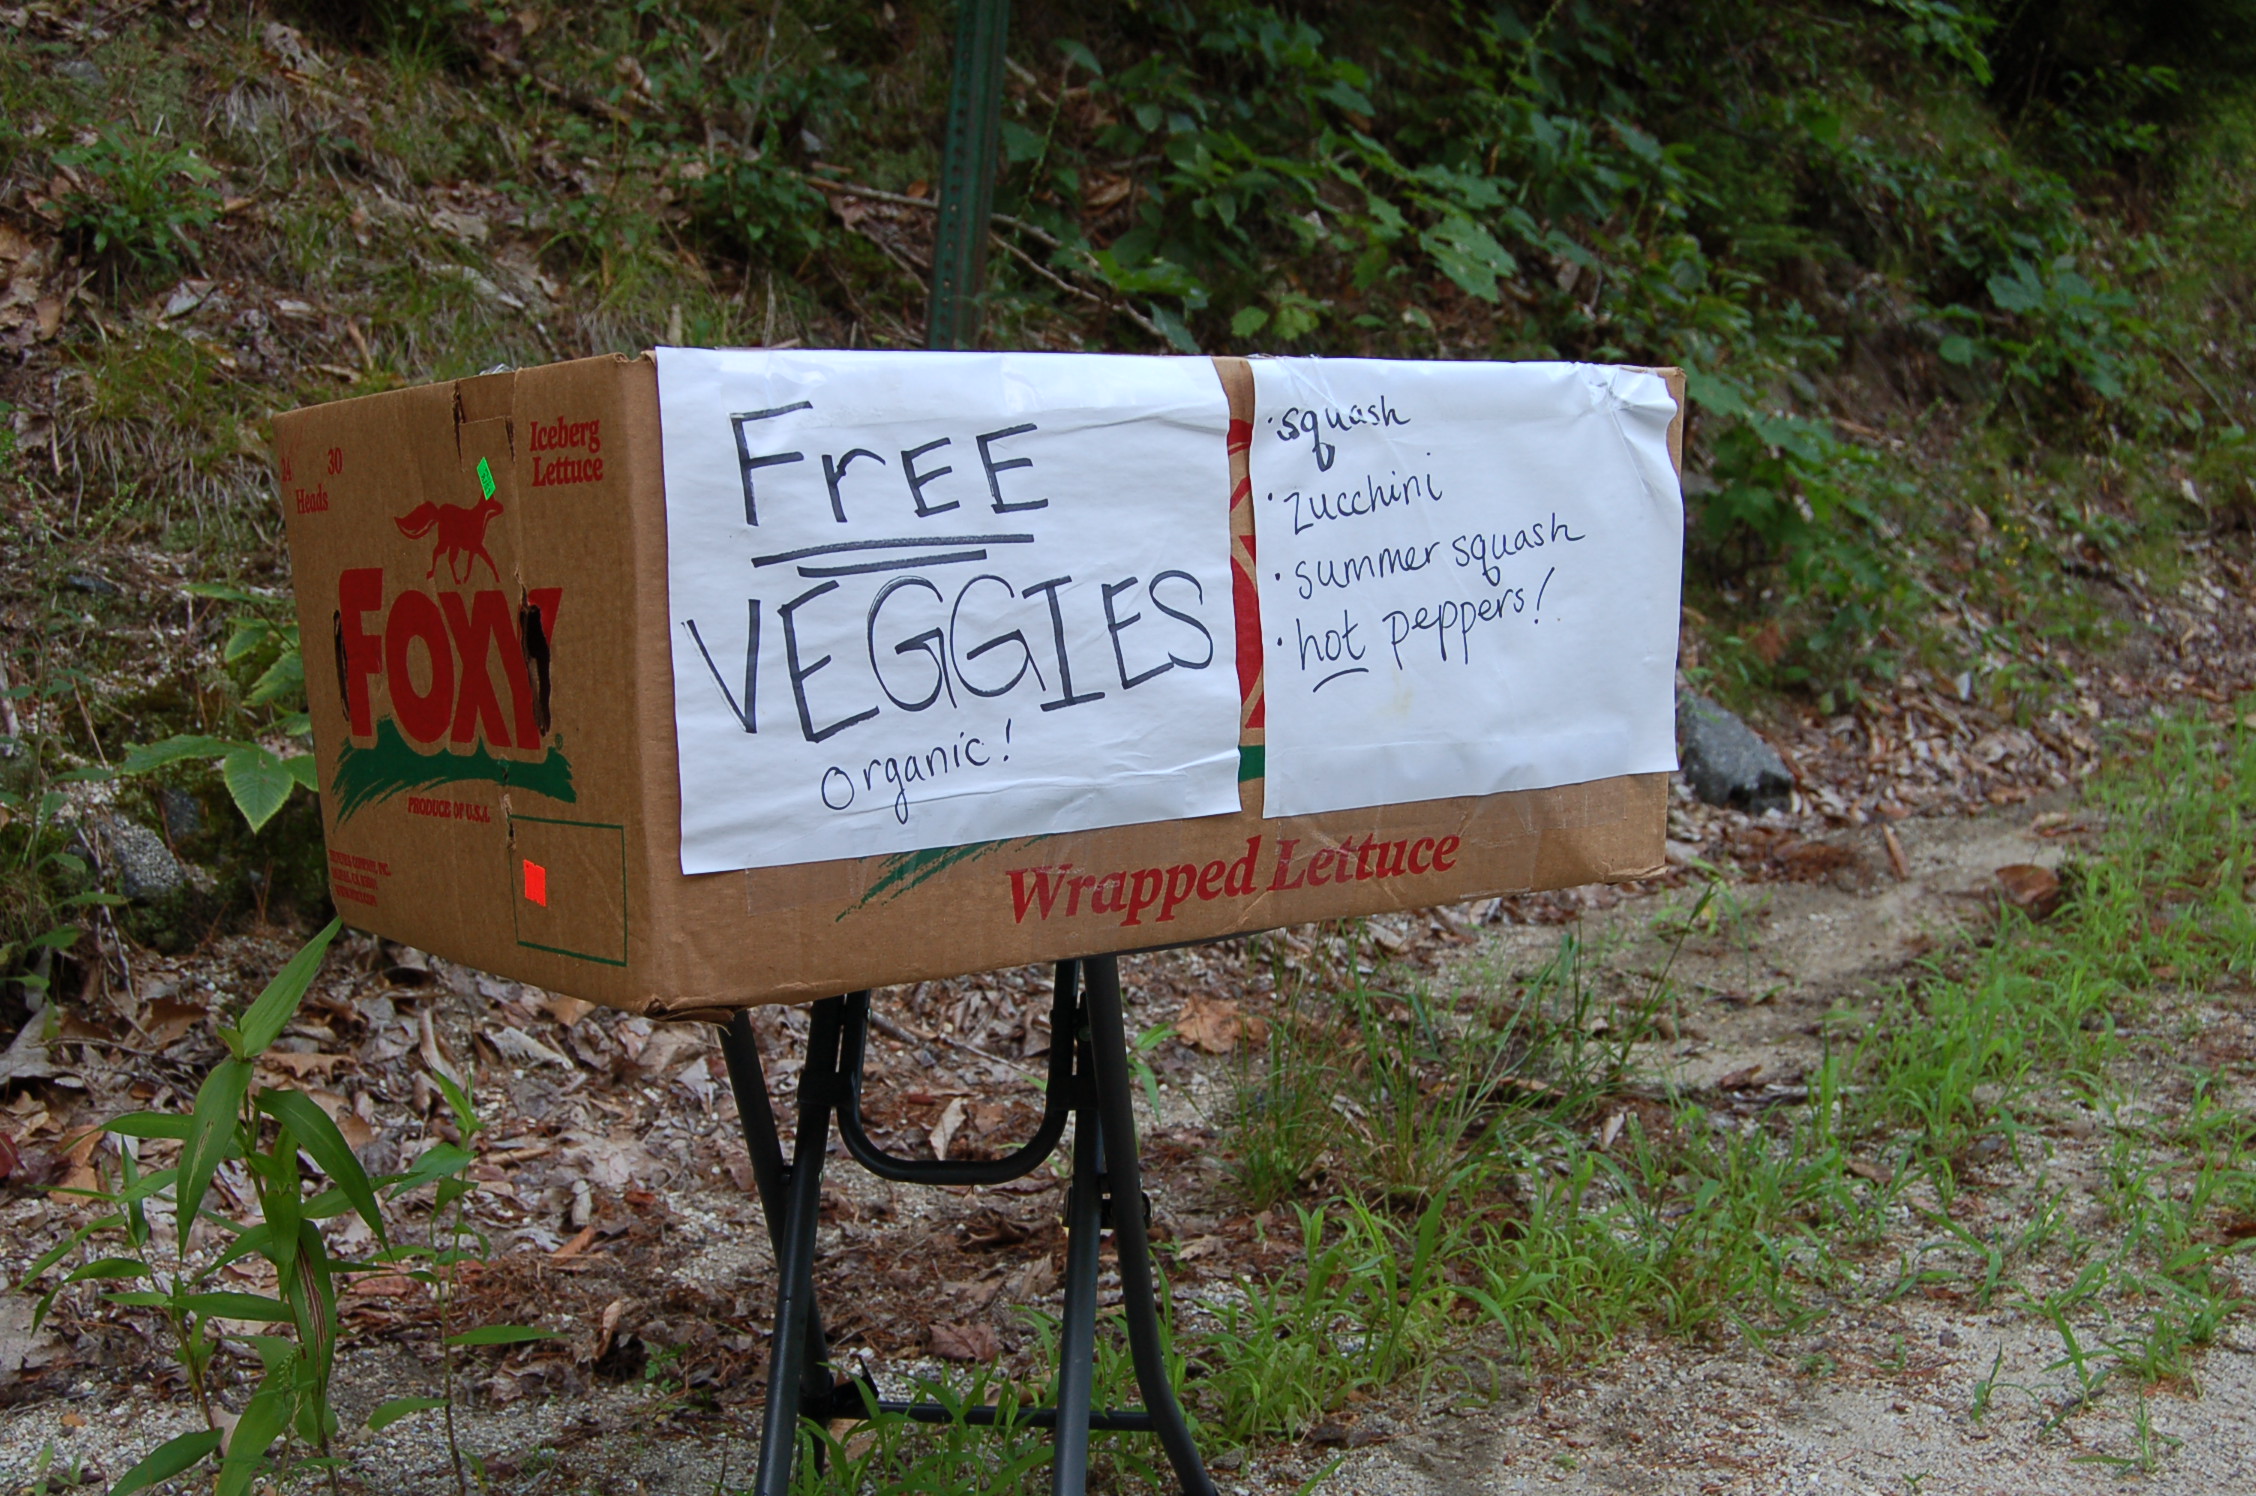 24 30
Heads
Iceberg
Lettuce
FOXY
PRODUCE OF U.S.A.
FrEE
VEGGIES
organic!
• squash
• zucchini
• summer squash
• hot peppers!
Wrapped Lettuce